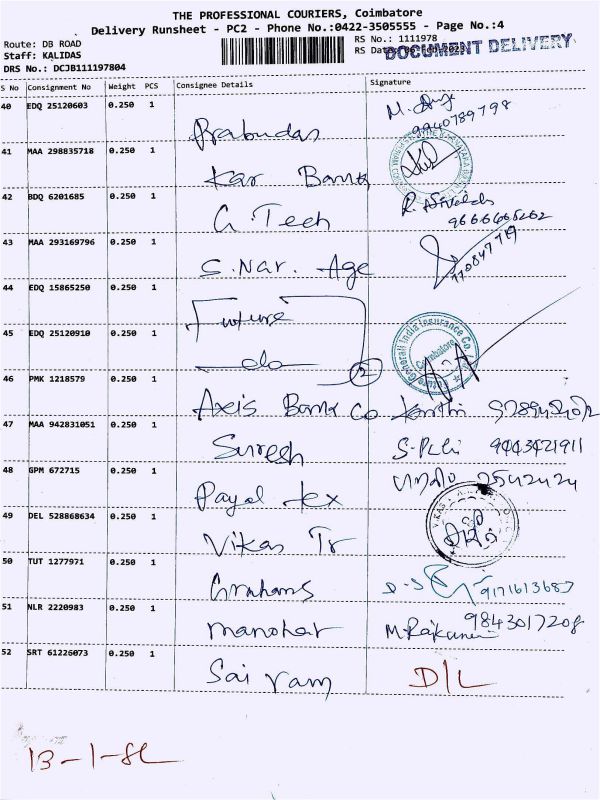 THE PROFESSIONAL COURIERS, Coimbatore
Delivery Runsheet - PC2 - Phone No.:0422-3505555 - Page No.:4
Route: DB ROAD
RS No.: 1111978
Staff: KALIDAS
RS Date
DOCUMENT DELIVERY
DRS No.: DCJB111197804
S No Consignment No Weight PCS Consignee Details Signature
40 EDQ 25120603 0.250 1 Prabudas M. 9940789798
41 MAA 298835718 0.250 1 Kar Bank
42 BDQ 6201685 0.250 1 G. Tech R.
43 MAA 293169796 0.250 1 S. Nar. Age
44 EDQ 15865250 0.250 1 Future
45 EDQ 25120910 0.250 1 do 2 Future Generali India Insurance Co. Coimbatore
46 PMK 1218579 0.250 1 Axis Bank Co
47 MAA 942831051 0.250 1 Suresh 9443421911
48 GPM 672715 0.250 1 Payal tex 2542424
49 DEL 528868634 0.250 1 Vikas Tr VIKAS
50 TUT 1277971 0.250 1 Grahams 9171613687
51 NLR 2220983 0.250 1 Manohar M. Rajkumar 9843017208
52 SRT 61226073 0.250 1 Sai ram D/L
13-1-SL